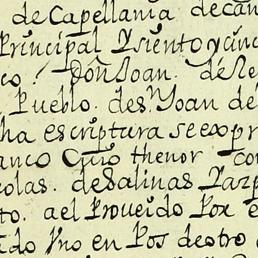 de Capellania decan
Principal Y siento y cinc
co / Dôn Joan. de Re
Pueblo. de sn Joan dé
ha escriptura se expr
anco Cuio thenor con
colas. de Salinas Parp
to. a el Proueido Por e
ido Vno en Pos de otro